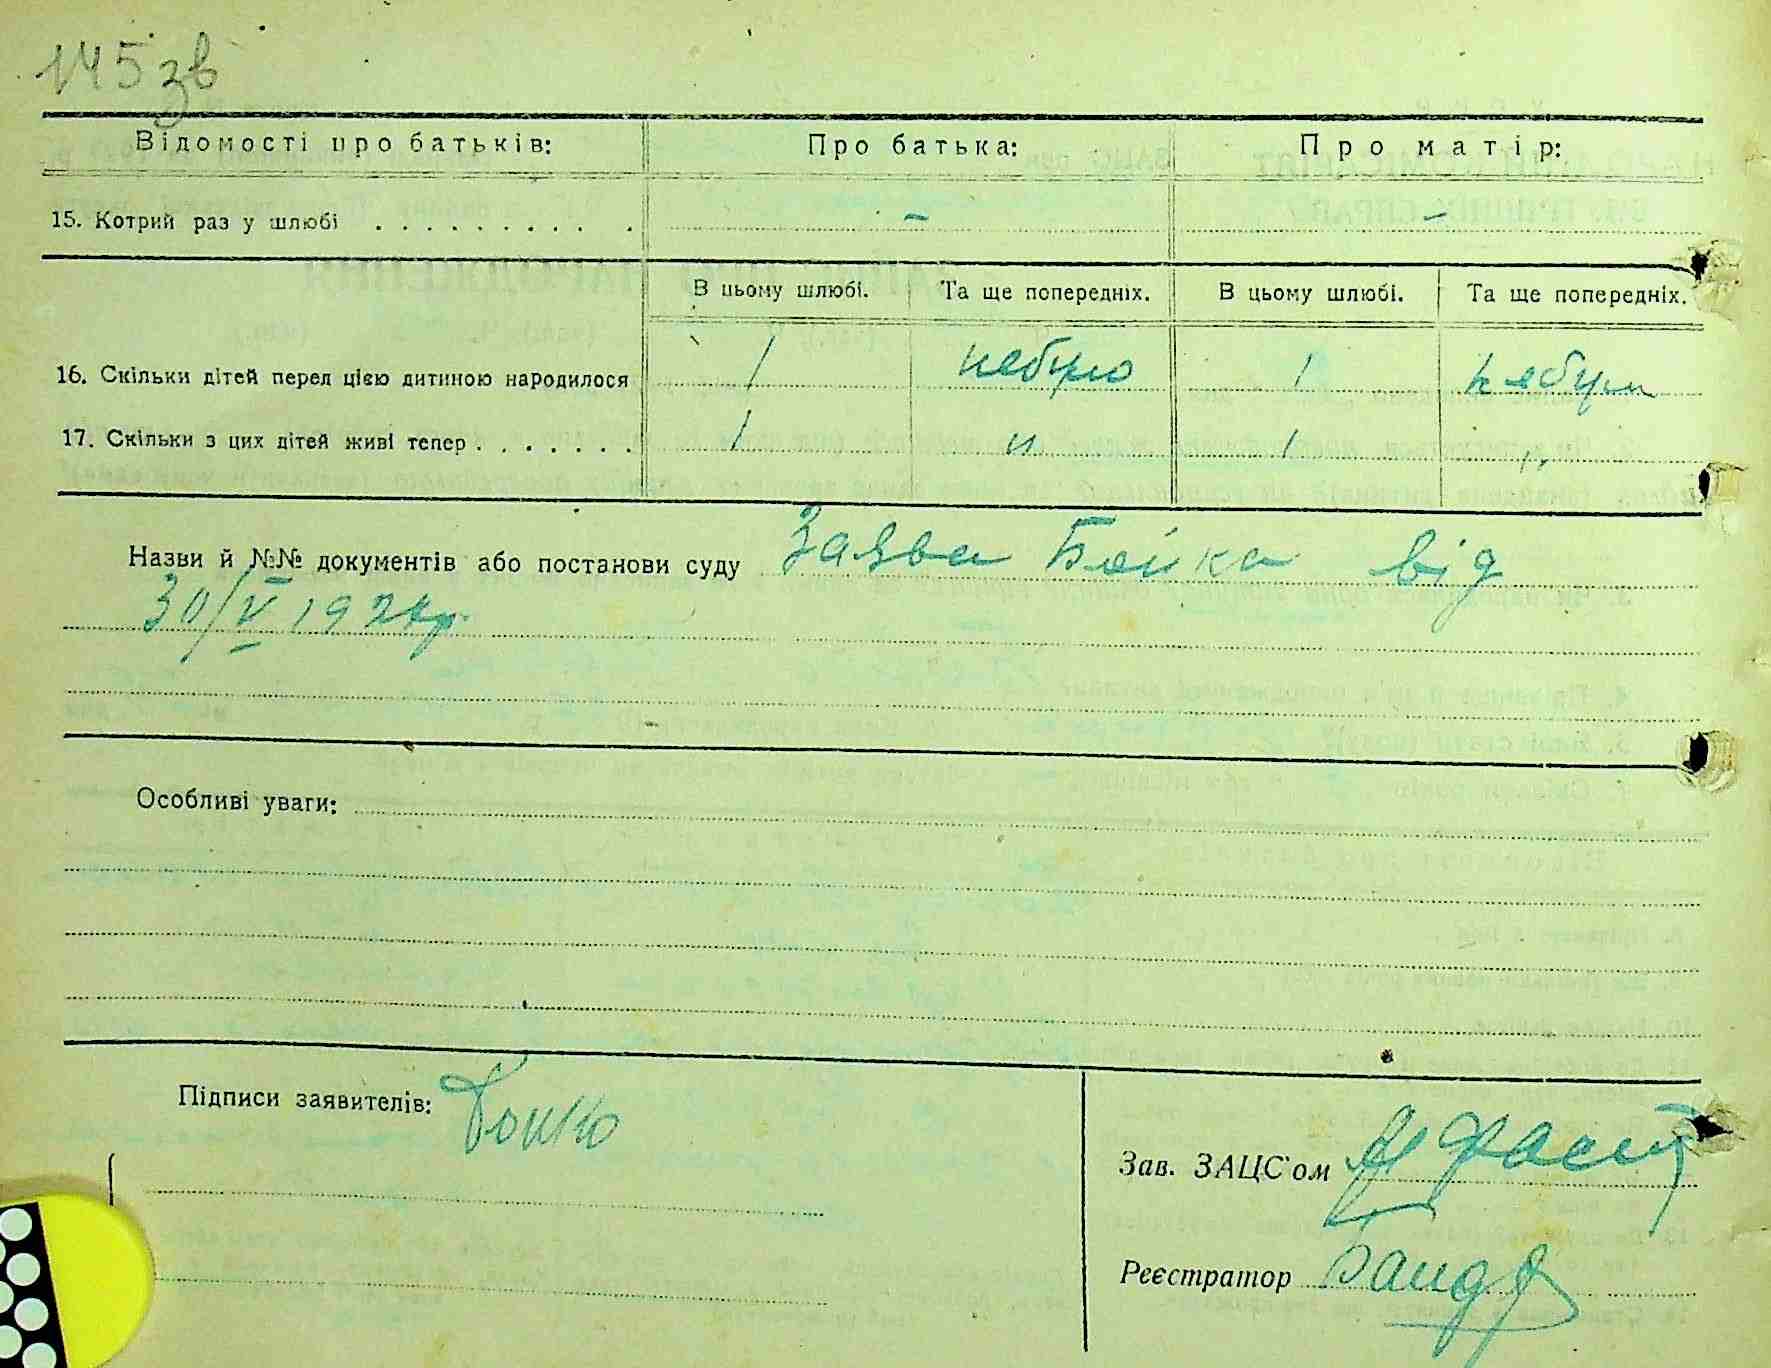 145 зв
Відомості про батьків: Про батька: Про матір:
15. Котрий раз у шлюбі . . . . . . . . . . – –
В цьому шлюбі. Та ще попередніх. В цьому шлюбі. Та ще попередніх.
16. Скільки дітей перед цією дитиною народилося 1 небуло 1 небули
17. Скільки з цих дітей живі тепер . . . . . . . 1 " 1 "
Назви й №№ документів або постанови суду Заява Бойка від
30/V 1924р.
Особливі уваги:
Підписи заявителів: Бойко
Зав. ЗАЦС'ом
Реєстратор